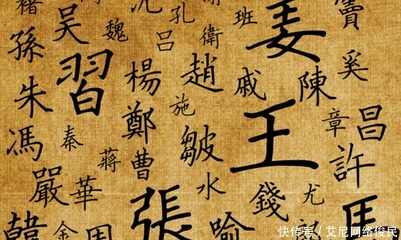 褚
吴
孔
班
姜
竇
孫
魏
吕
衛
習
楊
趙
戚
陳
奚
朱
施
章
昌
馮
秦
鄭
皺
王
許
蔣
曹
嚴
華
水
錢
尤
韓
金
張
喻
快传号/艾尼网络俊民